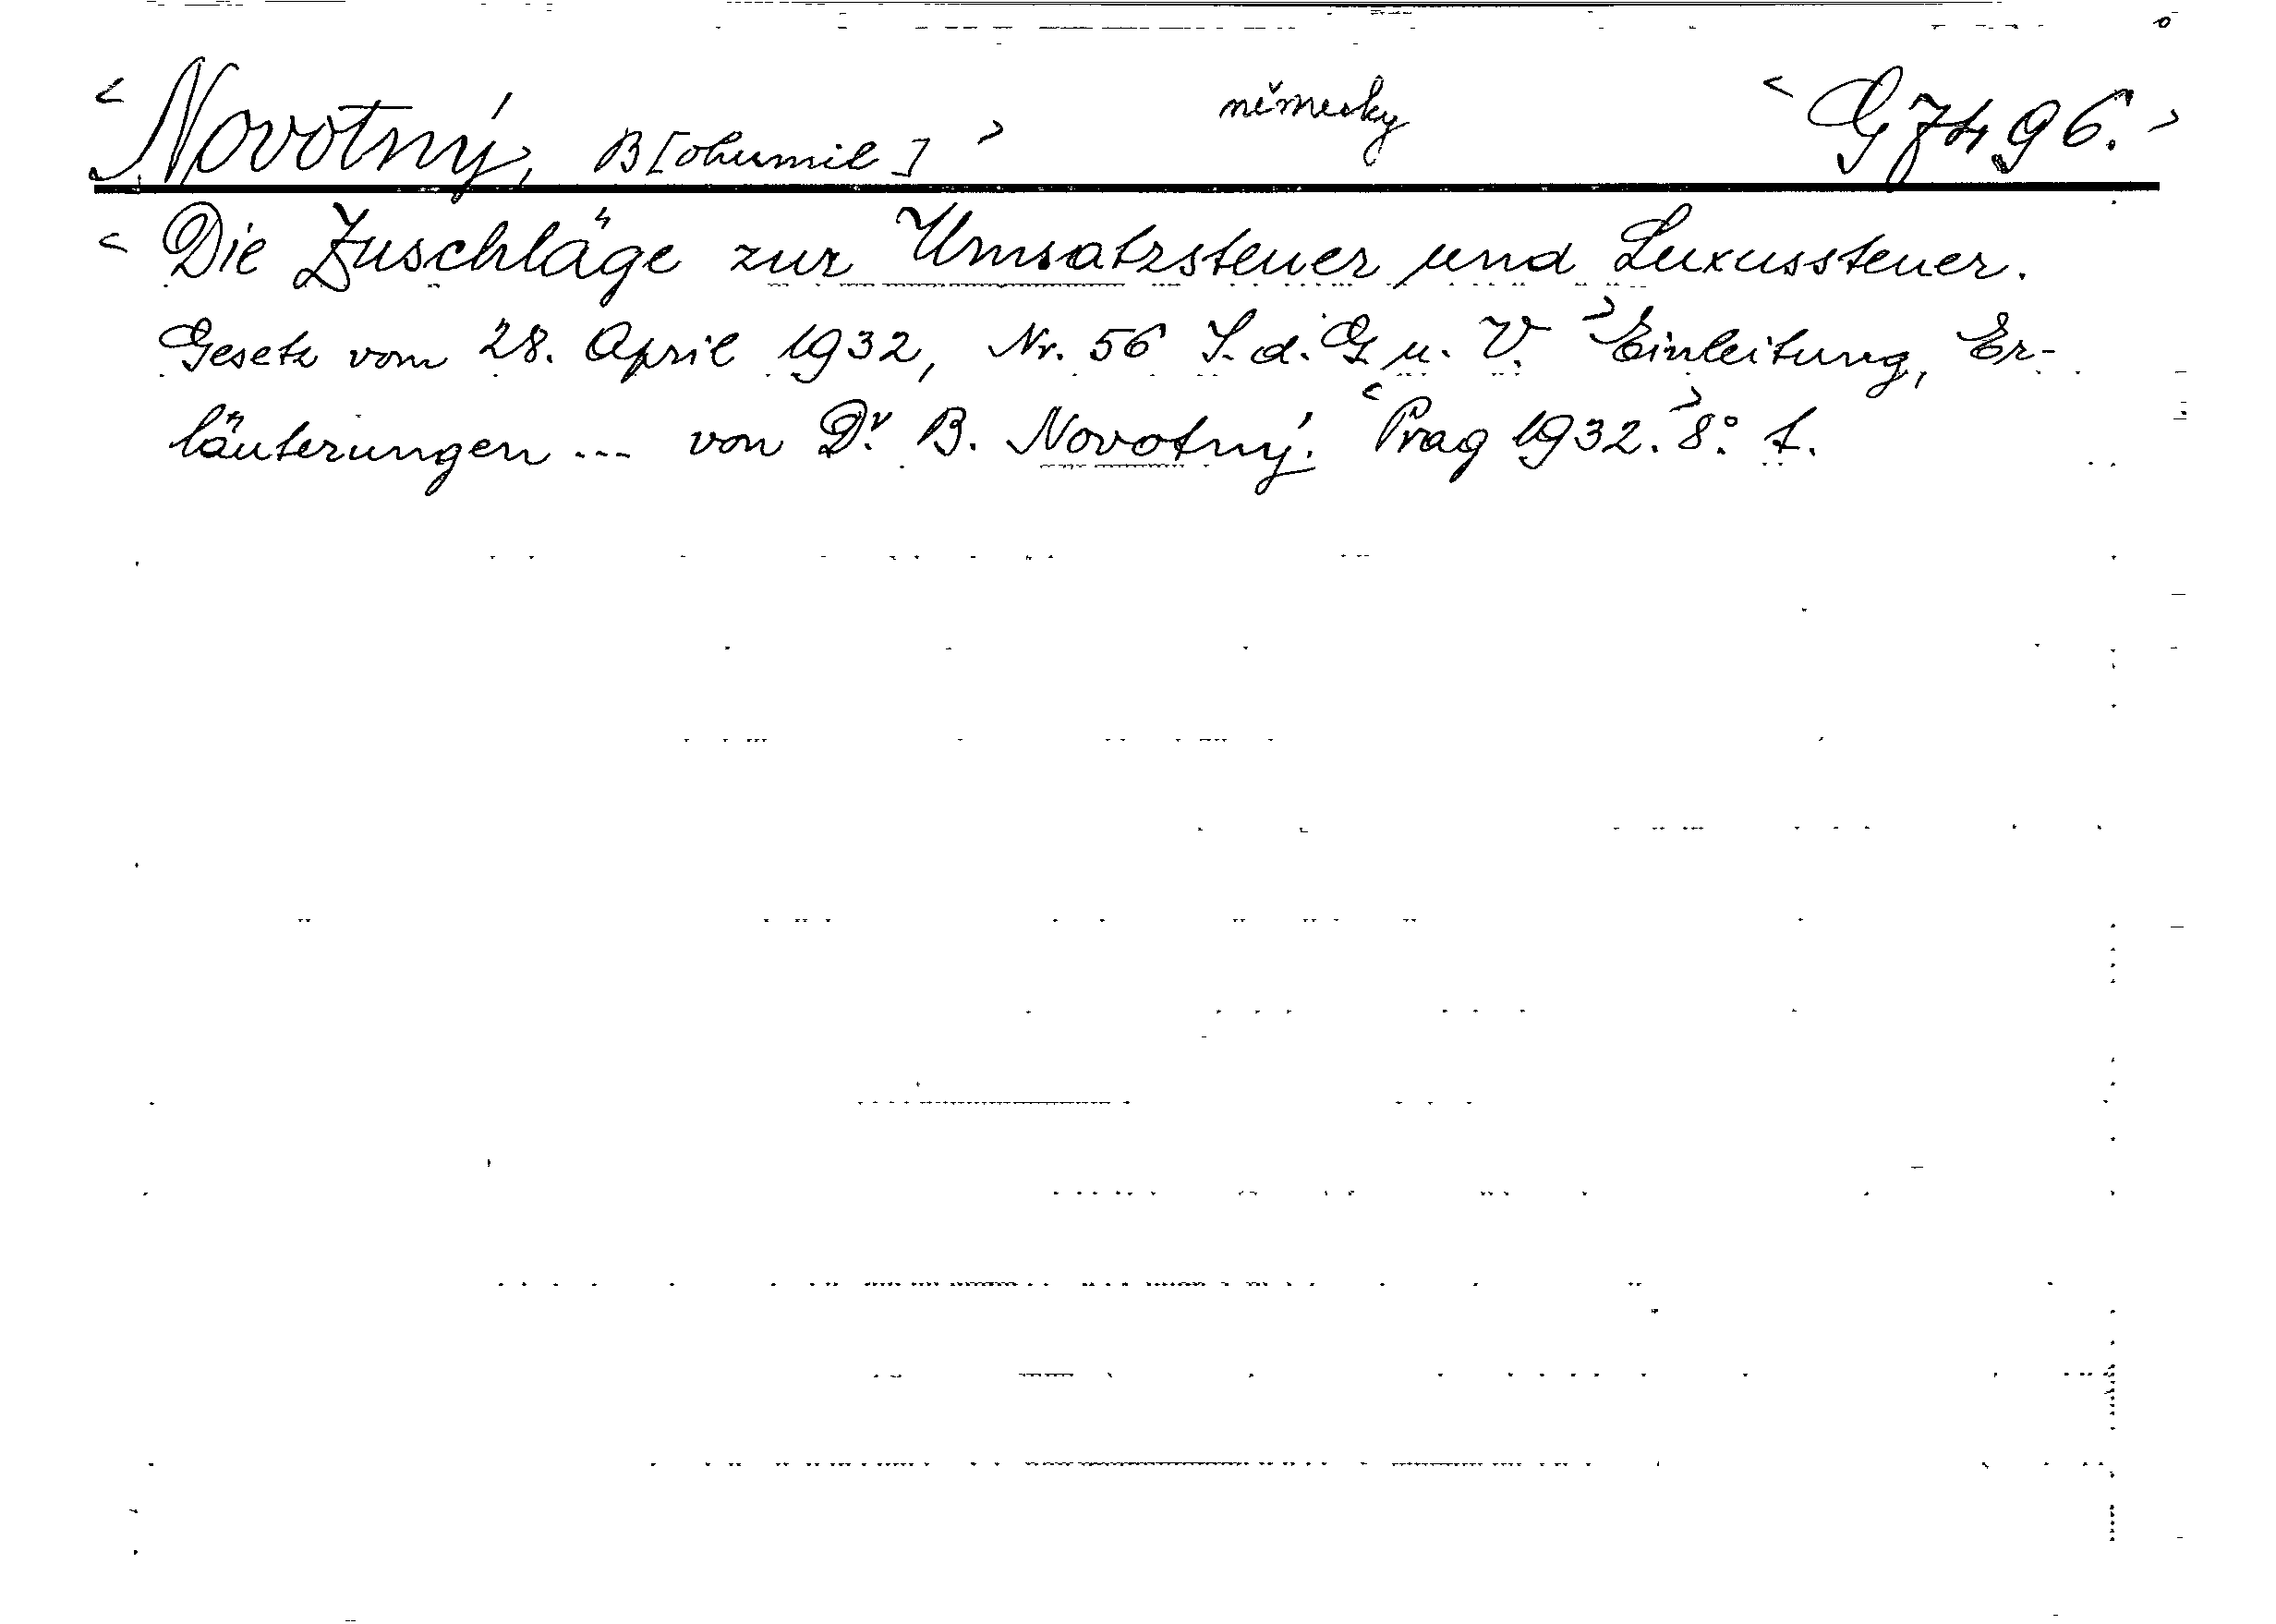 < Novotný, B[ohumil] > německy < G 7496. >
< Die Zuschläge zur Umsatzsteuer und Luxussteuer.
Gesetz vom 28. April 1932, Nr. 56 S. d. G. u. V. > Einleitung, Er-
läuterungen ... von Dr. B. Novotný. < Prag 1932. > 8°.